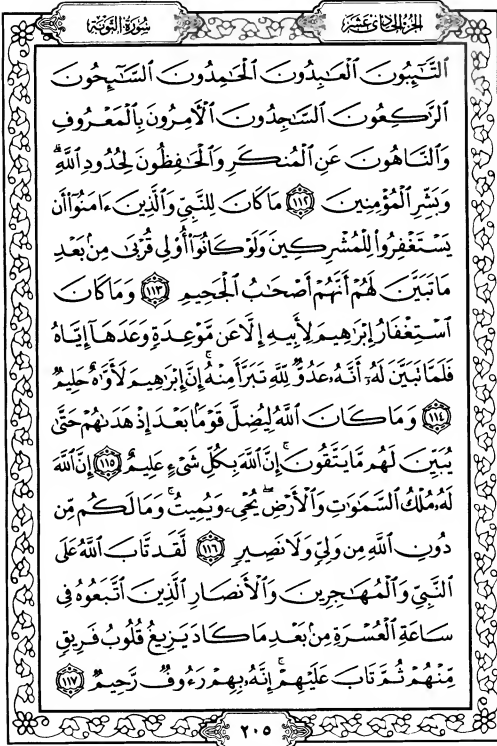 الجزء الحادي عشر
سورة التوبة
التَّٰٓئِبُونَ ٱلْعَٰبِدُونَ ٱلْحَٰمِدُونَ ٱلسَّٰٓئِحُونَ
ٱلرَّٰكِعُونَ ٱلسَّٰجِدُونَ ٱلْءَامِرُونَ بِٱلْمَعْرُوفِ
وَٱلنَّاهُونَ عَنِ ٱلْمُنكَرِ وَٱلْحَٰفِظُونَ لِحُدُودِ ٱللَّهِۗ
وَبَشِّرِ ٱلْمُؤْمِنِينَ ١١٢ مَا كَانَ لِلنَّبِيِّ وَٱلَّذِينَ ءَامَنُوٓا۟ أَن
يَسْتَغْفِرُوا۟ لِلْمُشْرِكِينَ وَلَوْ كَانُوٓا۟ أُو۟لِى قُرْبَىٰ مِنۢ بَعْدِ
مَا تَبَيَّنَ لَهُمْ أَنَّهُمْ أَصْحَٰبُ ٱلْجَحِيمِ ١١٣ وَمَا كَانَ
ٱسْتِغْفَارُ إِبْرَٰهِيمَ لِأَبِيهِ إِلَّا عَن مَّوْعِدَةٍ وَعَدَهَآ إِيَّاهُ
فَلَمَّا تَبَيَّنَ لَهُۥٓ أَنَّهُۥ عَدُوٌّ لِّلَّهِ تَبَرَّأَ مِنْهُۚ إِنَّ إِبْرَٰهِيمَ لَأَوَّٰهٌ حَلِيمٌ
١١٤ وَمَا كَانَ ٱللَّهُ لِيُضِلَّ قَوْمًۢا بَعْدَ إِذْ هَدَىٰهُمْ حَتَّىٰ
يُبَيِّنَ لَهُم مَّا يَتَّقُونَۚ إِنَّ ٱللَّهَ بِكُلِّ شَىْءٍ عَلِيمٌ ١١٥ إِنَّ ٱللَّهَ
لَهُۥ مُلْكُ ٱلسَّمَٰوَٰتِ وَٱلْأَرْضِۖ يُحْىِۦ وَيُمِيتُۚ وَمَا لَكُم مِّن
دُونِ ٱللَّهِ مِن وَلِىٍّ وَلَا نَصِيرٍ ١١٦ لَّقَد تَّابَ ٱللَّهُ عَلَى
ٱلنَّبِىِّ وَٱلْمُهَٰجِرِينَ وَٱلْأَنصَارِ ٱلَّذِينَ ٱتَّبَعُوهُ فِى
سَاعَةِ ٱلْعُسْرَةِ مِنۢ بَعْدِ مَا كَادَ يَزِيغُ قُلُوبُ فَرِيقٍ
مِّنْهُمْ ثُمَّ تَابَ عَلَيْهِمْۚ إِنَّهُۥ بِهِمْ رَءُوفٌ رَّحِيمٌ ١١٧
٢٠٥